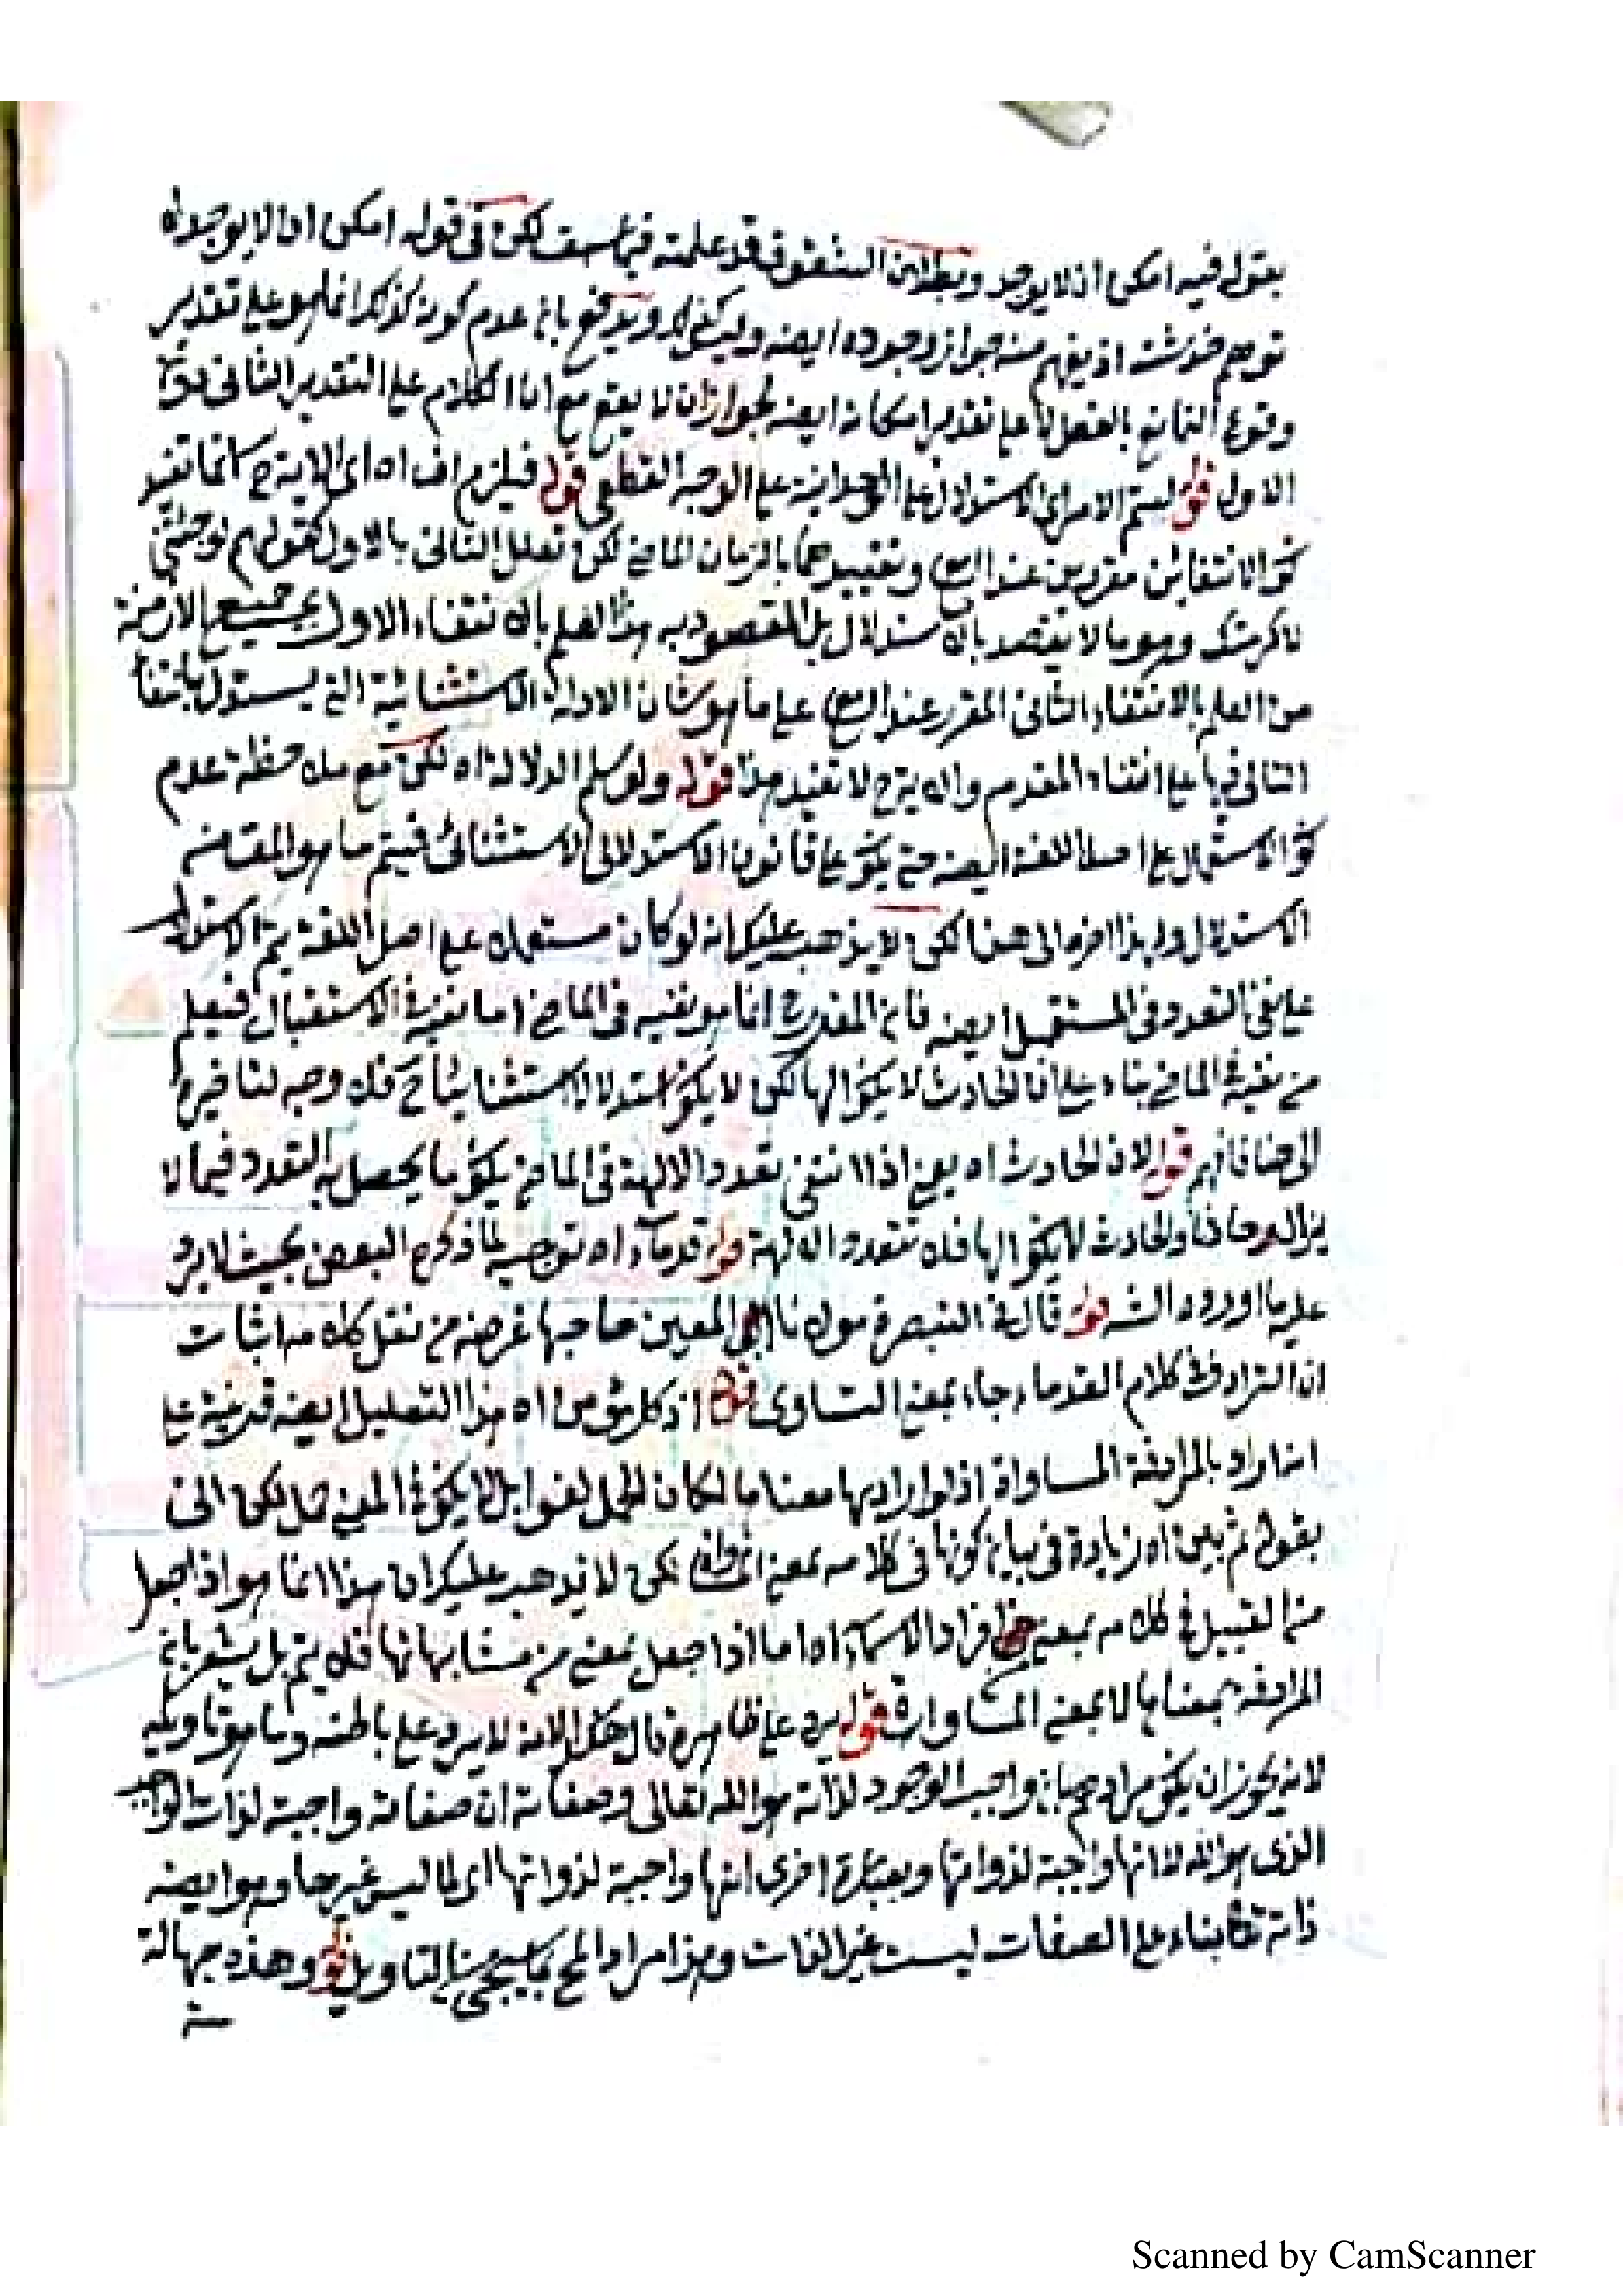 بقوله فيه امكن ان لا يوجد وبطلان الشقوق قد علمته فيما سبق لكن في قوله امكن ان لا يوجد اه
توهم خدشته اذ يفهم منه جواز وجوده ايضه وليس كذلك ويدفع بان عدم كونه كذلك انما هو على تقدير
وقوع التمانع بالفعل لا على تقدير امكانه ايضه لجواز ان لا يقع مع ان الكلام على التقدير الثاني دون
الاول قوله ليتم الامر اي الاستدلال على الوحدانية على الوجه القطعي قوله فيلزم اه اي الاية ح انما تفيد
كون الانتفائين مقررين عند السامع وتقييدهما بالزمان الماضي لكن تعلل الثاني بالاول كقولهم لو جئتني
لاكرمتك وهو ما لا يقصد بالاستدلال بل المقصود به هذا العلم بالانتفاء الاول بجميع الازمنة
من العلم بالانتفاء الثاني المقرر عند السامع على ما هو شان الادلة الاستثنائية التي يستدل بانتفاء
التالي فيها على انتفاء المقدم والاية ح لا تفيد هذا قوله ولو سلم الدلالة اه لكن مع ملاحظة عدم
كون الاستعمال على اصل اللغة ايضه حتى يكون على قانون الاستدلال الاستثنائي فيتم ما هو المقصد من
الاستدلال ولهذا اخره الى هنا لكن لا يذهب عليك انه لو كان مستعملا على اصل اللغة يتم الاستدلال
على نفي التعدد في المستقبل ايضه فان المقدر ح انما هو نفيه في الماضي اما نفيه في الاستقبال فيعلم
من نفيه في الماضي بناء على ان الحادث لا يكون الها لكن لا يكون استدلالا استثنائيا ح فلا وجه لتاخيره
الى هنا فافهم قوله لان الحادث اه يعني اذا انتفى تعدد الالهة في الماضي يكون ما يحصل به التعدد فيما لا
يزال حادثا والحادث لا يكون الها فلا تتعدد الالهة قوله قدماء اه توجيه لما ذكره البعض بحيث لا يرد
عليه ما اورده الش قوله قال في التبصرة مولانا ابي المعين صاحبها غرضه من نقل كلامه اثبات
ان الترادف في كلام القدماء جاء بمعنى التساوي قوله اذ كل مؤمن اه هذا التعليل ايضه قرينة على
انه اراد بالمرادفة المساواة اذ لو اراد بها معناها لكان الحمل لغوا بل لا يكون في المعنى حمل لكن الى
بقوله ثم بين اه زيادة في بيان كونها في كلامه بمعنى المساواة لكن لا يذهب عليك ان هذا انما هو اذا جعل
من القبيل في كلامه بمعنى افراد الاسماء اه اما اذا جعل بمعنى من مشابهاتها فلا يتم بل يشعر بان
المرادفة بمعناها لا بمعنى المساواة قوله يرد على ظاهره قال هكذا لانه لا يرد على باطنه وما هو تاويله
لانه يجوز ان يكون مرادهم بان واجب الوجود لذاته هو الله تعالى وصفاته ان صفاته واجبة لذات الواجب
الذي هو الله لا انها واجبة لذواتها وبعبارة اخرى انها واجبة لذواتها اي لما ليس غيرها وهو ايضه
ذاته تعالى بناء على الصفات ليست غير الذات وهذا مراد المح كما سيجيء من التاويل قوله وهذه جهالة